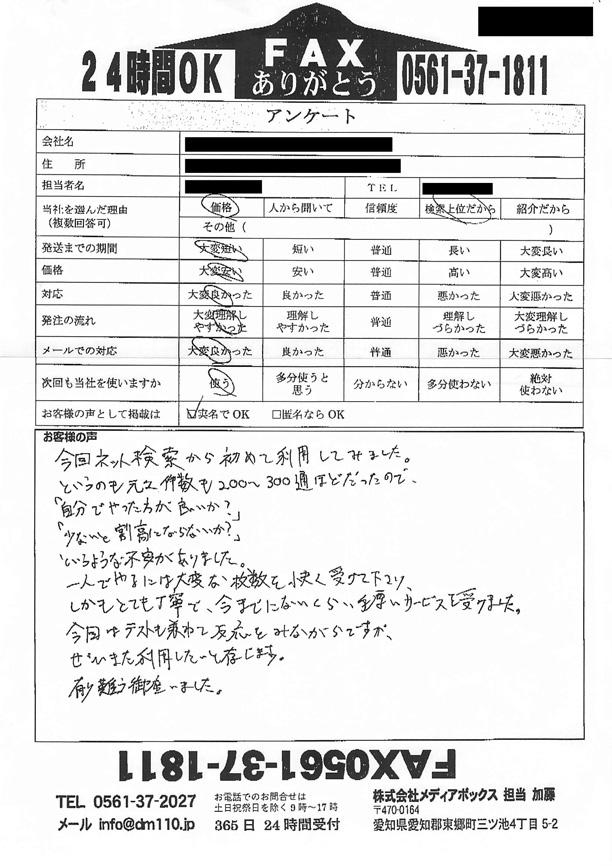 24時間OK
FAX
ありがとう
0561-37-1811
アンケート
会社名
住　所
担当者名 TEL
当社を選んだ理由
（複数回答可）
価格 人から聞いて 信頼度 検索上位だから 紹介だから
その他（ ）
発送までの期間 大変短い 短い 普通 長い 大変長い
価格 大変安い 安い 普通 高い 大変高い
対応 大変良かった 良かった 普通 悪かった 大変悪かった
発注の流れ 大変理解しやすかった 理解しやすかった 普通 理解しづらかった 大変理解しづらかった
メールでの対応 大変良かった 良かった 普通 悪かった 大変悪かった
次回も当社を使いますか 使う 多分使うと思う 分からない 多分使わない 絶対使わない
お客様の声として掲載は ☑実名でOK □匿名ならOK
お客様の声
今回ネット検索から初めて利用してみました。
というのも元々件数も200〜300通ほどだったので、
「自分でやった方が良いか?」
「少ないと割高にならないか?」
というような不安がありました。
一人でやるには大変な枚数を快く受けて下り、
しかもとても丁寧で、今までにないくらい手厚いサービスを受けました。
今回はテストも兼ねて反応をみながらですが、
ぜひまた利用したいと存じます。
有難う御座いました。
FAX0561-37-1811
TEL 0561-37-2027
メール info@dm110.jp
お電話でのお問合せは
土日祝祭日を除く9時〜17時
365日24時間受付
株式会社メディアボックス 担当 加藤
〒470-0164
愛知県愛知郡東郷町三ツ池4丁目5-2